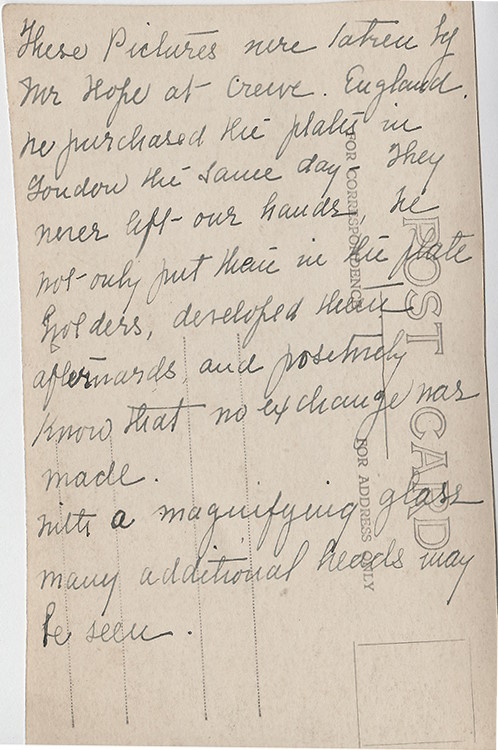 These Pictures were taken by
Mr Hope at Crewe. England.
we purchased the plates in
London the same day They
never left our hands, we
not only put them in the plate
holders, developed them
afterwards, and positively
know that no exchange was
made.
With a magnifying glass
many additional heads may
be seen.
POST CARD
FOR CORRESPONDENCE
FOR ADDRESS ONLY